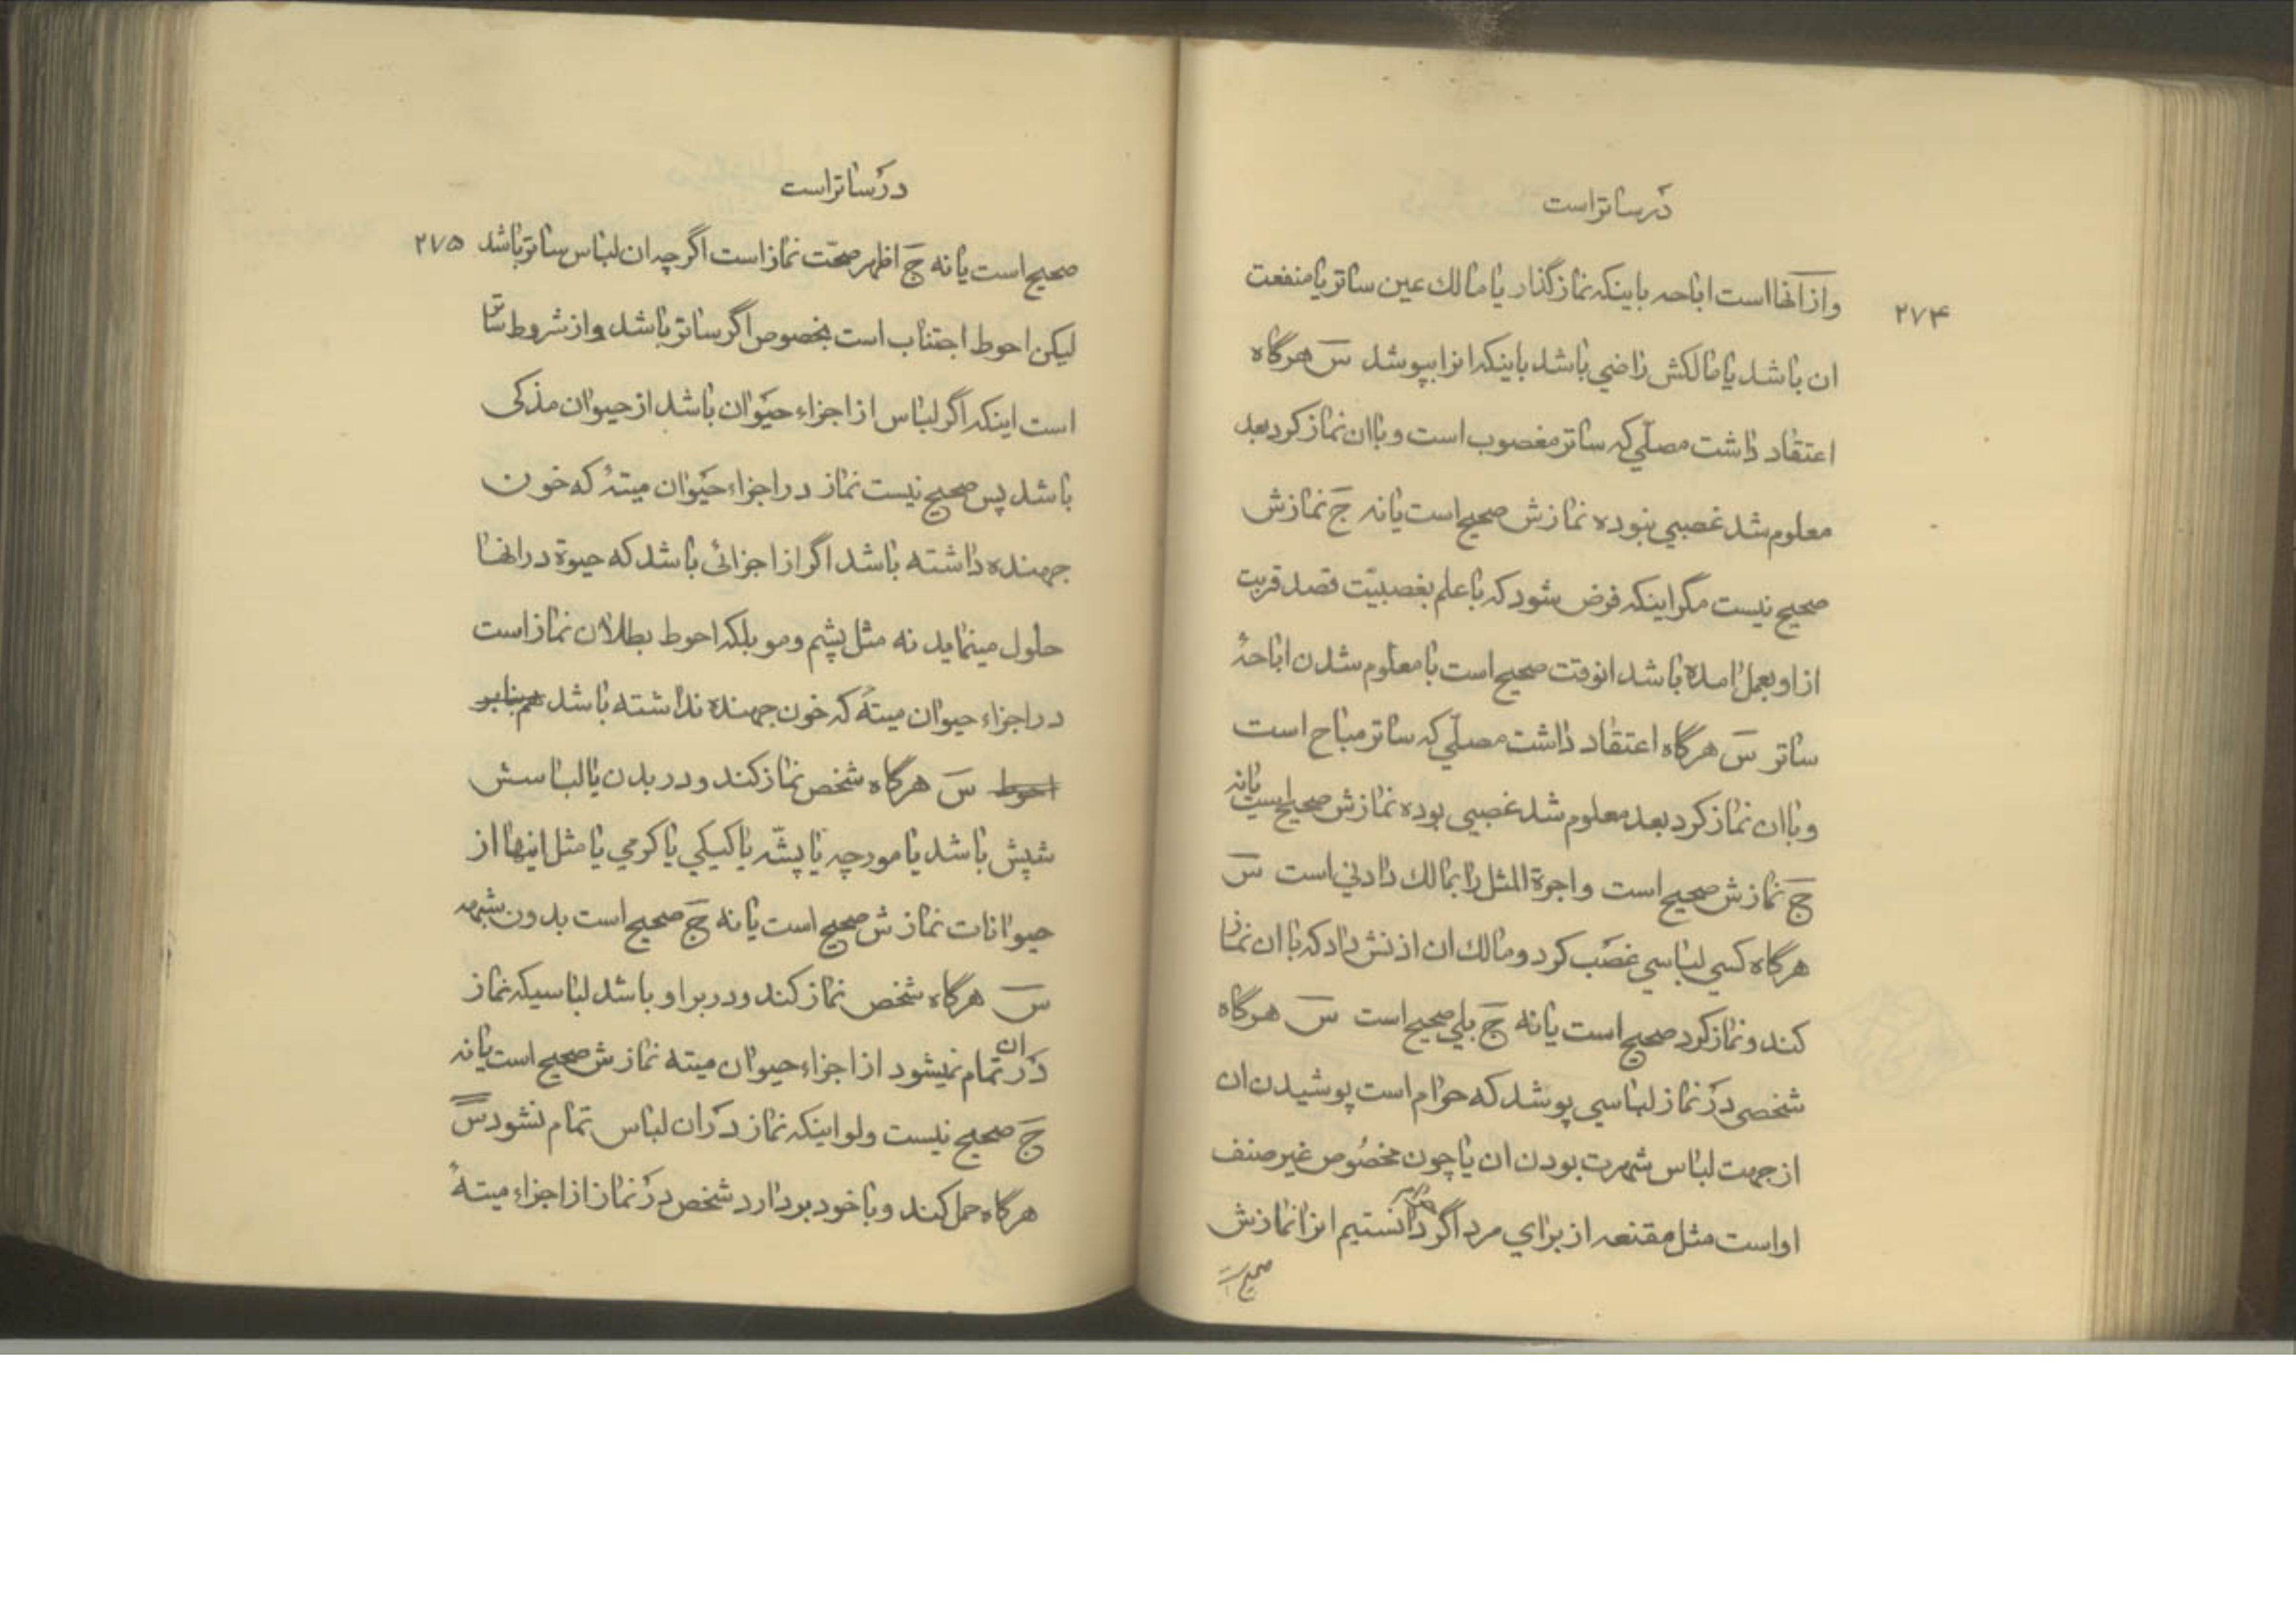 در ساتر است
۲۷۴
و از آنها است اباحه باینکه نماز گذار یا مالك عین ساتر یا منفعت
ان باشد یا مالکش راضي باشد باینکه انرا بپوشد س هرگاه
اعتقاد داشت مصلّي که ساتر مغصوب است و با ان نماز کرد بعد
معلوم شد غصبي نبوده نمازش صحیح است یا نه ج نمازش
صحیح نیست مگر اینکه فرض شود که با علم بغصبیّت قصد قربت
از او بعمل امده باشد انوقت صحیح است با معلوم شدن اباحهٔ
ساتر س هرگاه اعتقاد داشت مصلّي که ساتر مباح است
و با ان نماز کرد بعد معلوم شد غصبي بوده نمازش صحیح است یا نه
ج نمازش صحیح است و اجرة المثل را بمالك دادني است س
هرگاه کسي لباسي غصب کرد و مالك ان اذنش داد که با ان نماز
کند و نماز کرد صحیح است یا نه ج بلي صحیح است س هرگاه
شخصي در نماز لباسي پوشد که حرام است پوشیدن ان
از جهت لباس شهرت بودن ان یا چون مخصوص غیر صنف
او است مثل مقنعه از براي مرد اگر حرام دانستیم انرا نمازش
صحیح است
در ساتر است
۲۷۵
صحیح است یا نه ج اظهر صحّت نماز است اگر چه ان لباس ساتر باشد
لیکن احوط اجتناب است بخصوص اگر ساتر باشد و از شروط ساتر
است اینکه اگر لباس از اجزاء حیوان باشد از حیوان مذکی
باشد پس صحیح نیست نماز در اجزاء حیوان میتهٔ که خون
جهنده داشته باشد اگر از اجزائی باشد که حیوة در انها
حلول مینماید نه مثل پشم و مو بلکه احوط بطلان نماز است
در اجزاء حیوان میتهٔ که خون جهنده نداشته باشد هم بنابر
احوط س هرگاه شخص نماز کند و در بدن یا لباسش
شپش باشد یا مورچه یا پشّه یا کیکي یا کرمي یا مثل اینها از
حیوانات نمازش صحیح است یا نه ج صحیح است بدون شبهه
س هرگاه شخص نماز کند و در بر او باشد لباسیکه نماز
در ان تمام نمیشود از اجزاء حیوان میته نمازش صحیح است یا نه
ج صحیح نیست ولو اینکه نماز در ان لباس تمام نشود س
هرگاه حمل کند و با خود بردارد شخص در نماز از اجزاء میتهٔ